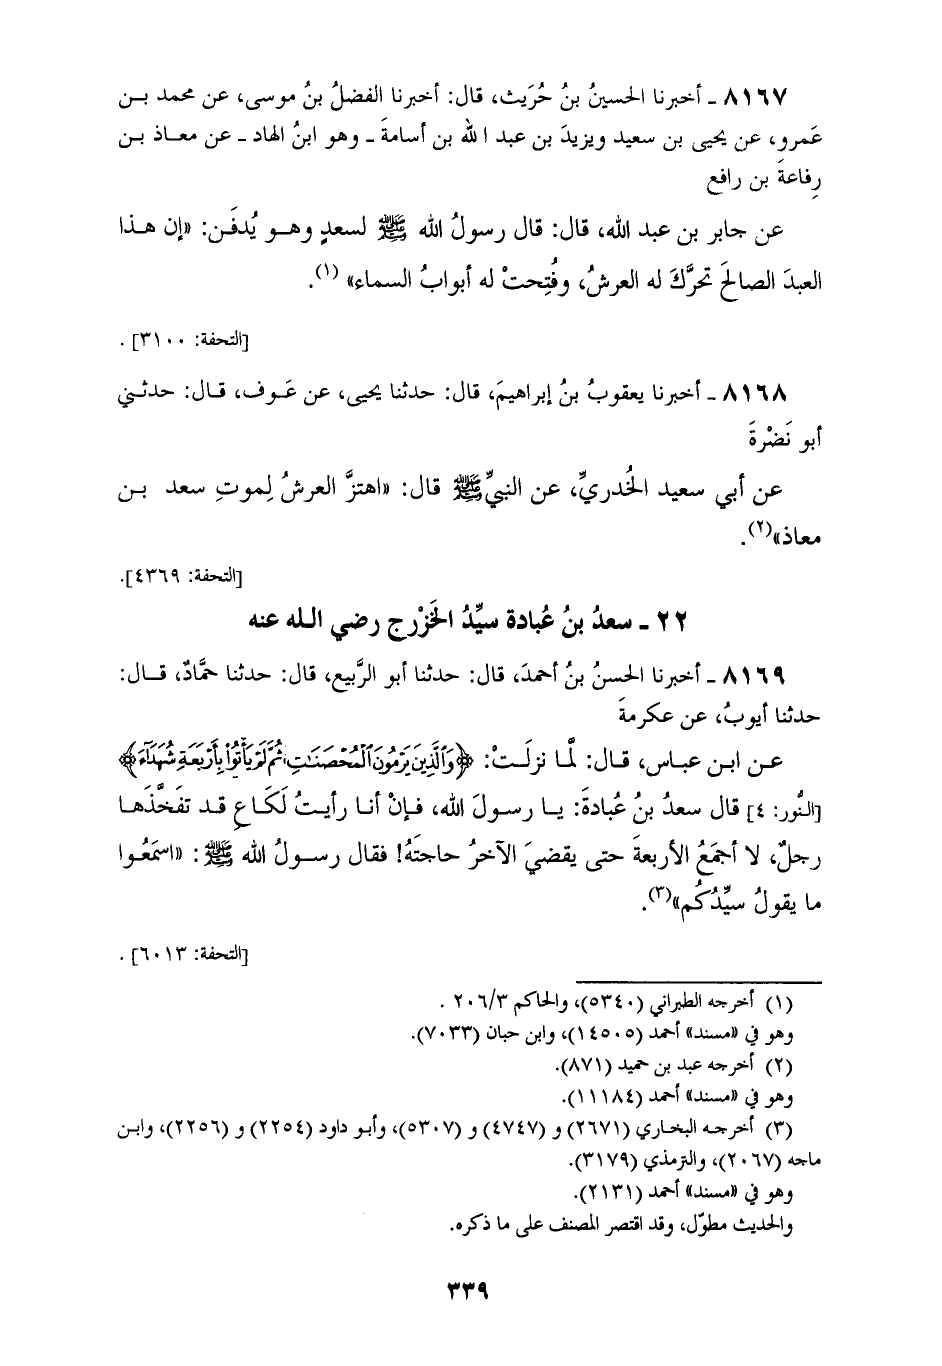 ٨١٦٧ ـ أخبرنا الحسينُ بنُ حُرَيث، قال: أخبرنا الفضلُ بنُ موسى، عن محمد بـن
عَمرو، عن يحيى بن سعيد ويزيدَ بن عبد الله بن أسامةَ ـ وهو ابنُ الهاد ـ عن معـاذ بـن
رِفاعةَ بن رافع
عن جابر بن عبد الله، قال: قال رسولُ الله ﷺ لسعدٍ وهـو يُدفَـن: «إن هـذا
العبدَ الصالحَ تحرَّكَ له العرشُ، وفُتِحتْ له أبوابُ السماء» (١).
[التحفة: ٣١٠٠] .
٨١٦٨ ـ أخبرنا يعقوبُ بنُ إبراهيمَ، قال: حدثنا يحيى، عن عَـوف، قـال: حدثـني
أبو نَضْرةَ
عن أبي سعيد الخُدريِّ، عن النبيِّ ﷺ قال: «اهتزَّ العرشُ لِموتِ سعد بـن
معاذ»(٢).
[التحفة: ٤٣٦٩].
٢٢ ـ سعدُ بنُ عُبادة سيِّدُ الخَزْرج رضي الـله عنه
٨١٦٩ ـ أخبرنا الحسنُ بنُ أحمدَ، قال: حدثنا أبو الرَّبيع، قال: حدثنا حمَّادٌ، قـال:
حدثنا أيوبُ، عن عكرمةَ
عـن ابـن عبـاس، قـال: لمَّا نزلَـتْ: ﴿وَٱلَّذِينَ يَرْمُونَ ٱلْمُحْصَنَاتِ ثُمَّ لَمْ يَأْتُواْ بِأَرْبَعَةِ شُهَدَآءَ﴾
[النُّور: ٤] قال سعدُ بنُ عُبادةَ: يـا رسـولَ الله، فـإنْ أنـا رأيـتُ لَكَـاعِ قـد تفَخَّذَهـا
رجلٌ، لا أجمَعُ الأربعةَ حتى يقضيَ الآخرُ حاجتَهُ! فقال رسـولُ الله ﷺ : «اسمَعُـوا
ما يقولُ سيِّدُكُم»(٣).
[التحفة: ٦٠١٣] .
(١) أخرجه الطبراني (٥٣٤٠)، والحاكم ٢٠٦/٣ .
وهو في «مسند» أحمد (١٤٥٠٥)، وابن حبان (٧٠٣٣).
(٢) أخرجه عبد بن حميد (٨٧١).
وهو في «مسند» أحمد (١١١٨٤).
(٣) أخرجـه البخـاري (٢٦٧١) و (٤٧٤٧) و (٥٣٠٧)، وأبـو داود (٢٢٥٤) و (٢٢٥٦)، وابـن
ماجه (٢٠٦٧)، والترمذي (٣١٧٩).
وهو في «مسند» أحمد (٢١٣١).
والحديث مطوّل، وقد اقتصر المصنف على ما ذكره.
٣٣٩